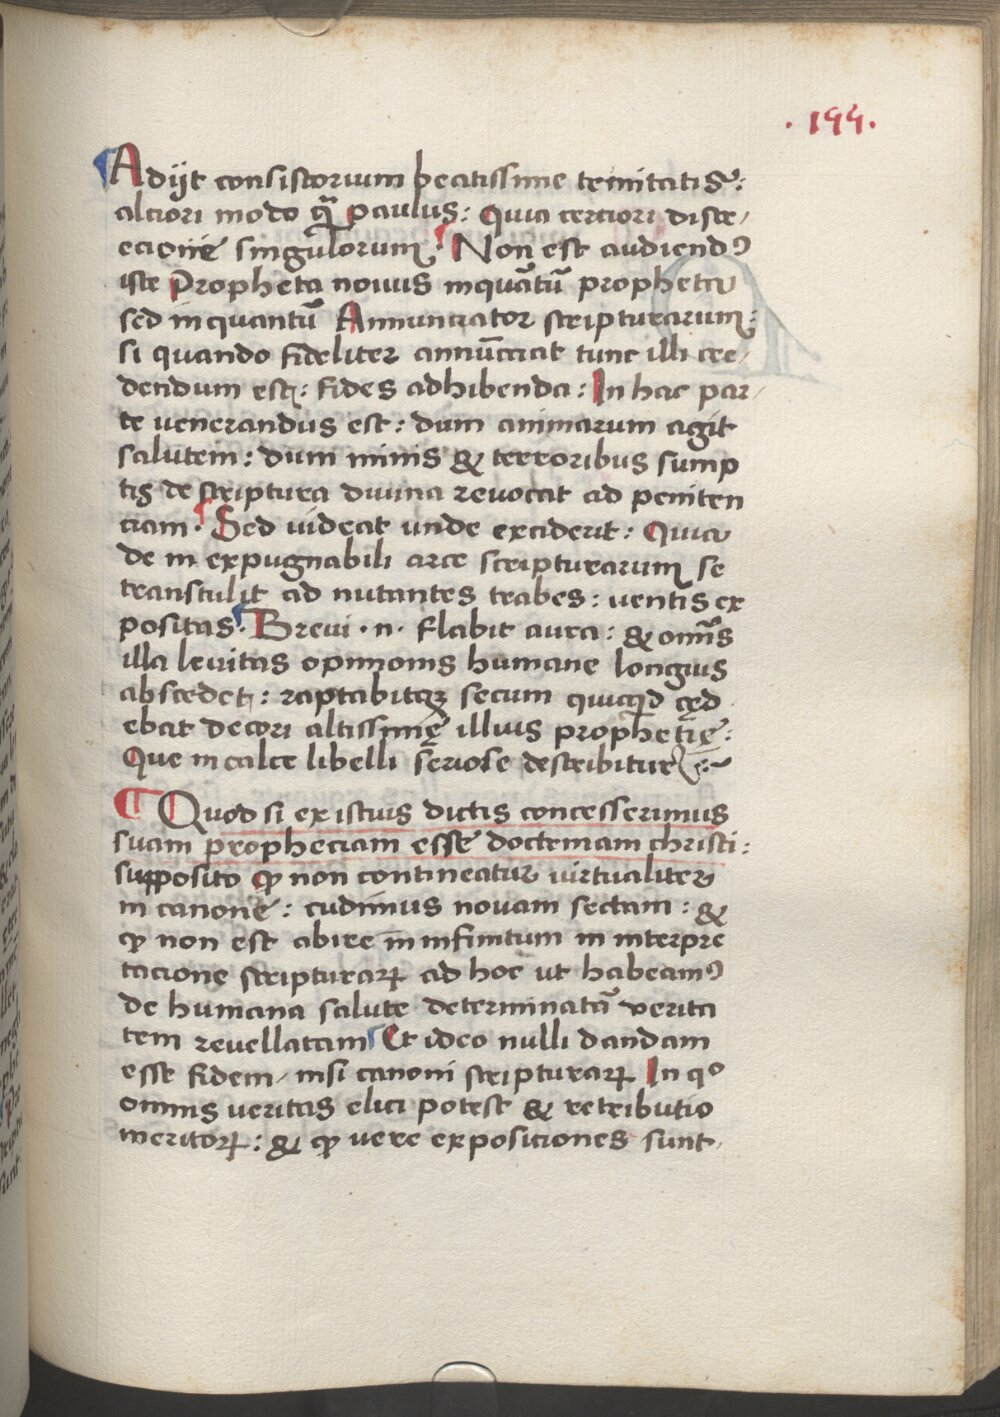 .199.
Adijt consistorium beatissime trinitatis:
alciori modo qᷓ paulus: Quia cerciori discr/
ecione singulorum. Non est audiendꝰ
iste Propheta nouus inquātū propheta
sed in quantū Annunciator scripturarum:
si quando fideliter annūcciat tunc illi cre/
dendum estq;: fides adhibenda: In hac par/
te venerandus est: dum animarum agit
salutem: dum minis & terroribus sump
tis de scriptura diuina reuocat ad peniten
ciam. Sed uideat unde exciderit: Quia
de in expugnabili arce scripturarum se
transtulit ad nutantes trabes: uentis ex
positas. Breui .n. flabit aura: & omīs
illa leuitas opinionis humane longius
abscedet: raptabitqꝫ secum quicqͥd cęd
ebat decori altissimę illius prophetię:
Que in calce libelli seriose describitur
Quod si ex istuis dictis concesserimus
suam propheciam esse doctrinam christi:
supposito ꝙ non contineatur uirtualiter
in canone: cudimus nouam sectam: &
ꝙ non est abire in infinitum in interpre
tacione scripturarꝝ ad hoc ut habeamꝰ
de humana salute determinatā verita
tem reuellatam Et ideo nulli dandam
esse fidem / nisi canoni scripturarꝝ In qͦ
omnis ueritas elici potest & retributio
meritorꝝ: & ꝙ vere exposiciones sunt